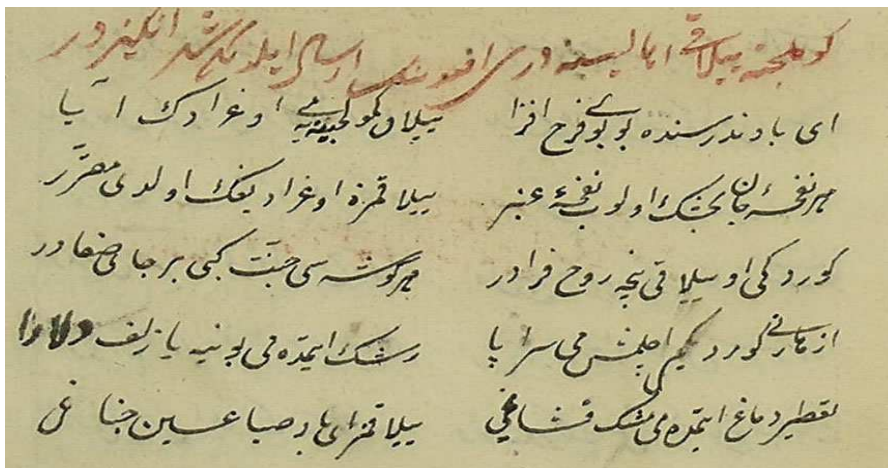 كوملجنه ييلاقى اهاليسنه افندينك ارسال ايلدكى شهر انكيزدر
اى باد ندر سنده بو بوى فرح افزا ييلاق كوملجنه يه مى اوغرادك آيا
هر نفحۀ جان بخشك اولوب نفحۀ عنبر ييلاقمزه اوغراديغك اولدى مقرر
كوردكمى او ييلاقى نيجه روح فزادر هر كوشه سى جنت كبى بر جاى صفادر
ازهارينى كوردكمى آچلمش مى سراپا رشك ايتمده مى بوينه يا زلف دلارا
تعطير دماغ ايتمده مى مشك ييلاقمز اى باد صبا عين جنانمى